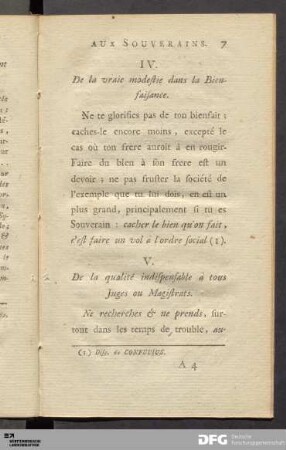 AUX SOUVERAINS. 7
IV.
De la vraie modeſtie dans la Bien-
faiſance.
Ne te glorifies pas de ton bienfait :
caches-le encore moins, excepté le
cas où ton frere auroit à en rougir.
Faire du bien à ſon frere eſt un
devoir ; ne pas fruſter la ſociété de
l'exemple que tu lui dois, en eſt un
plus grand, principalement ſi tu es
Souverain : cacher le bien qu'on fait,
c'eſt faire un vol à l'ordre ſocial (1).
V.
De la qualité indiſpenſable à tous
Juges ou Magiſtrats.
Ne recherches & ne prends, ſur-
tout dans les temps de trouble, au-
(1) Diſſ. de CONFUCIUS.
A 4
DFG Deutsche
Forschungsgemeinschaft